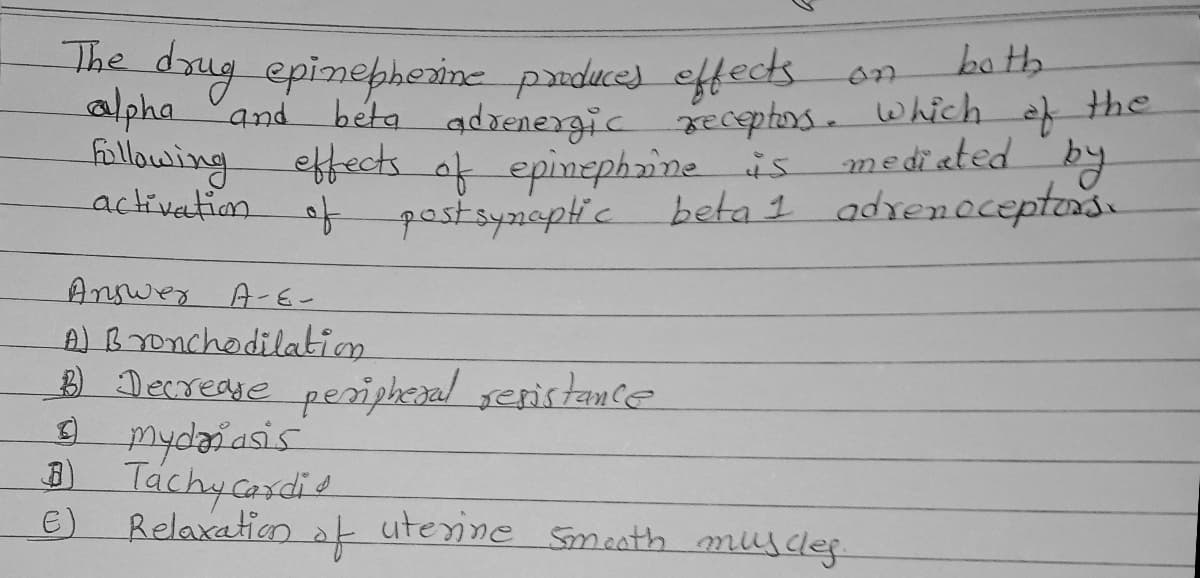 The drug epinepherine produces effects on both
alpha and beta adrenergic receptors. Which of the
following effects of epinephrine is mediated by
activation of postsynaptic beta 1 adrenoceptors.
Answer A-E-
A) Bronchodilation
B) Decrease peripheral resistance
C) mydriasis
D) Tachycardia
E) Relaxation of uterine smooth muscles.